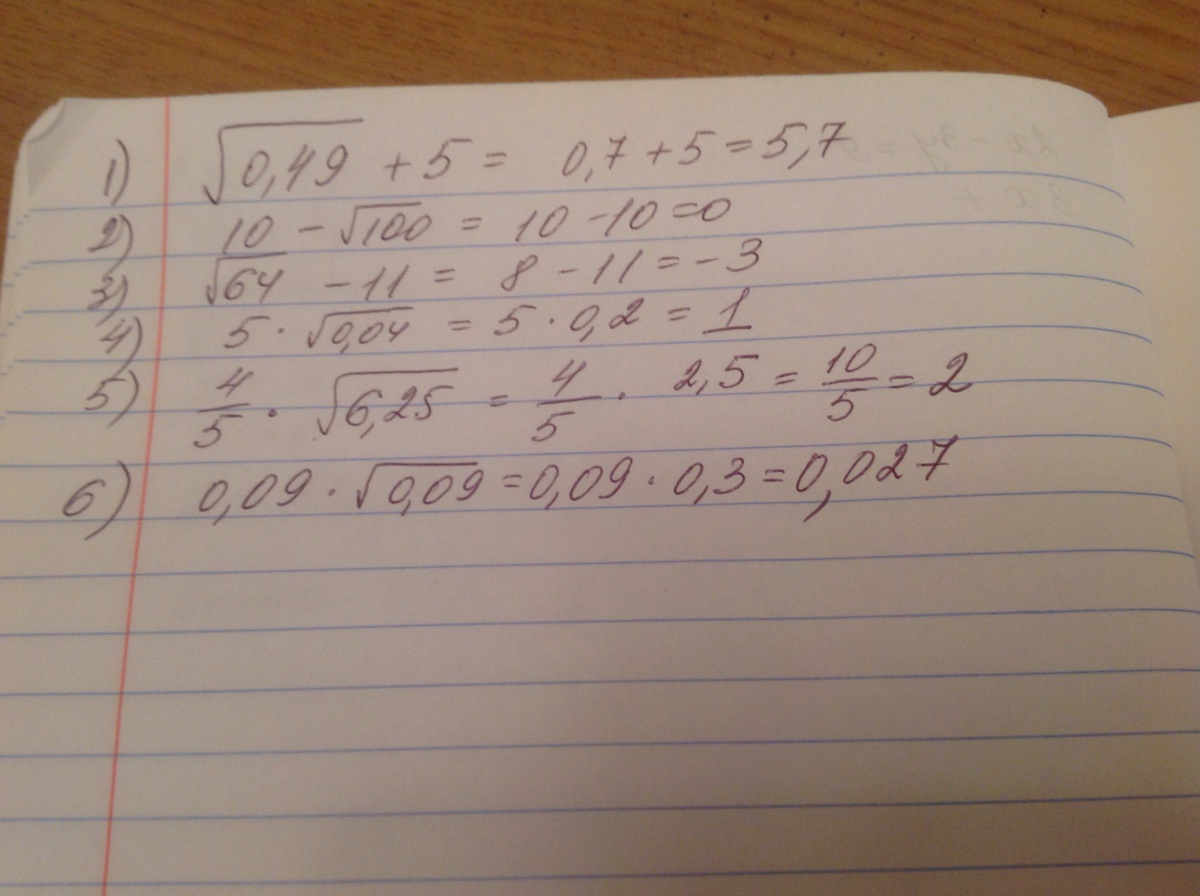 1) √0,49 + 5 = 0,7 + 5 = 5,7
2) 10 - √100 = 10 - 10 = 0
3) √64 - 11 = 8 - 11 = -3
4) 5 · √0,04 = 5 · 0,2 = 1
5) 4/5 · √6,25 = 4/5 · 2,5 = 10/5 = 2
6) 0,09 · √0,09 = 0,09 · 0,3 = 0,027